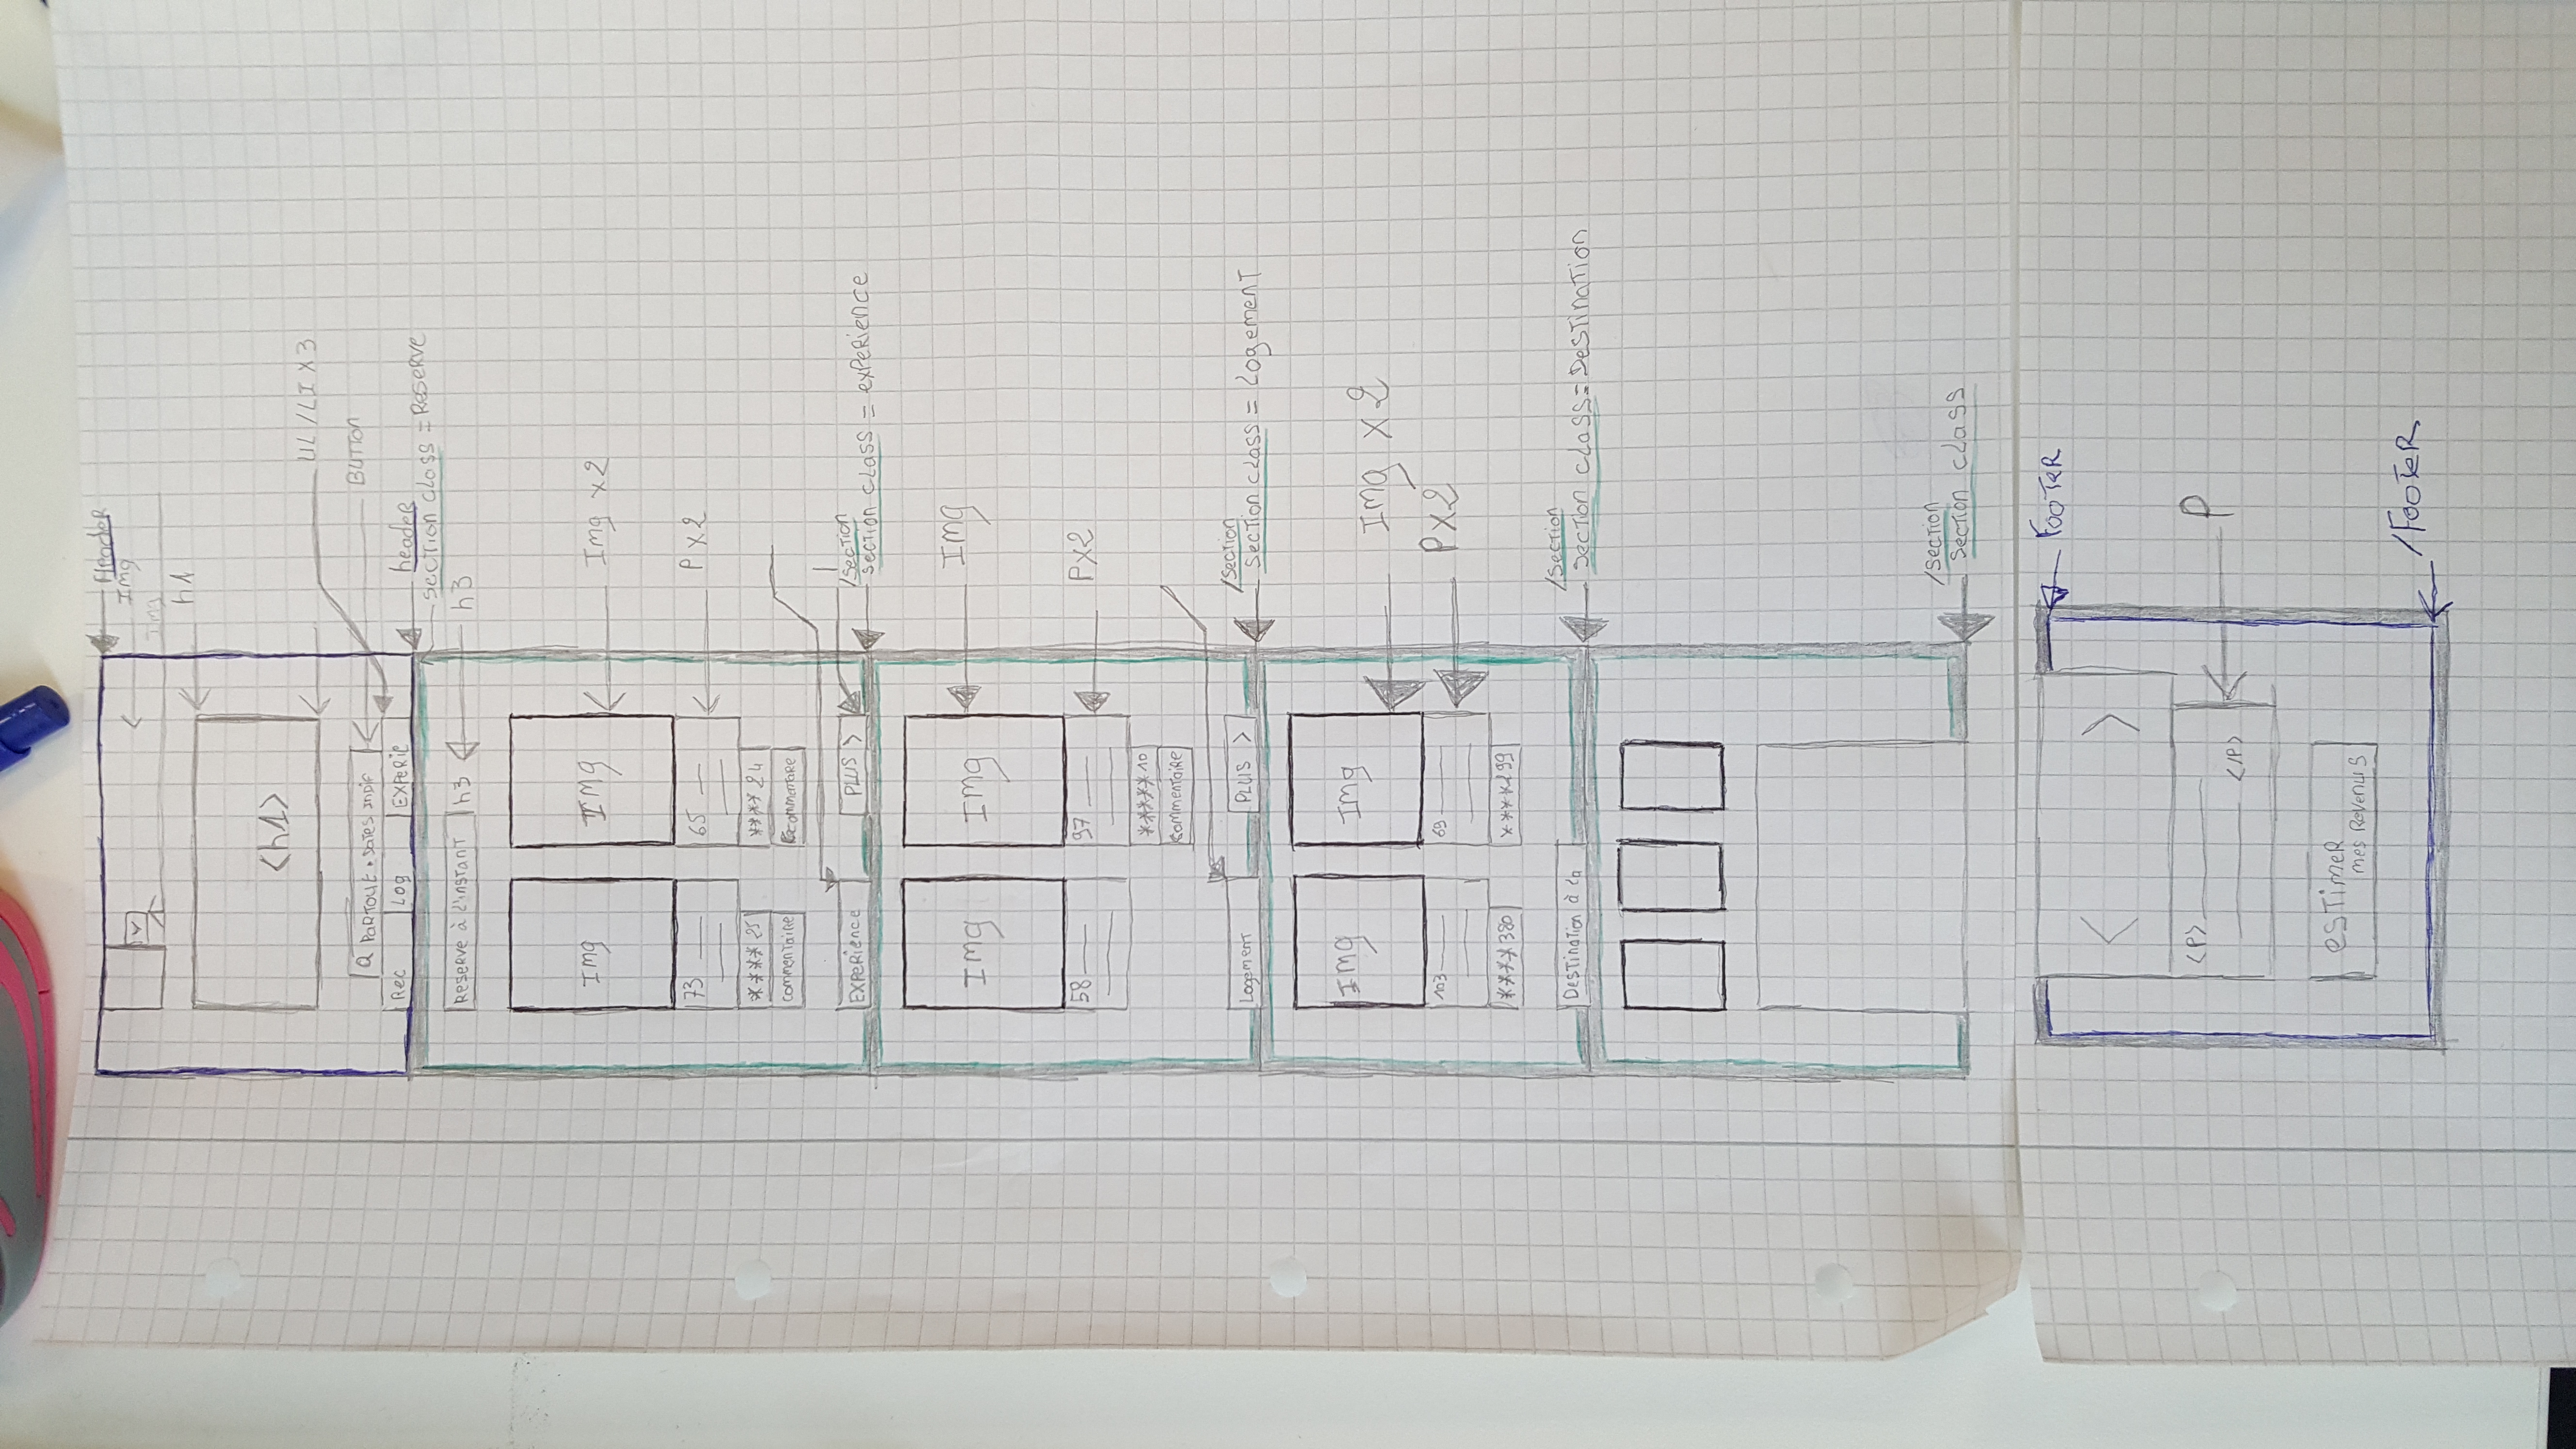 HeadeR
Img
Img
h1
<h1>
UL/LI X3
BUTTON
Q PaRTOUT • DATES INDIF
Rec
Log
EXPeRie
headeR
Section class = ReseRve
ReseRve à L'instant
h3
h3
Img
Img
Img x2
73
65
P x2
**** 25
**** 24
commentaiRe
commentaRe
EXPeRience
PLUS >
/section
Section class = exPeRience
Img
Img
Img
58
97
Px2
*****10
CommentaiRe
Logement
PLUS >
/Section
Section class = Logement
Img
Img
Img x2
103
69
Px2
****380
****199
Destination à la
/Section
Section class = Destination
/Section
Section class
FooTeR
<
>
<P>
</P>
P
esTimeR
mes Revenus
/FooTeR